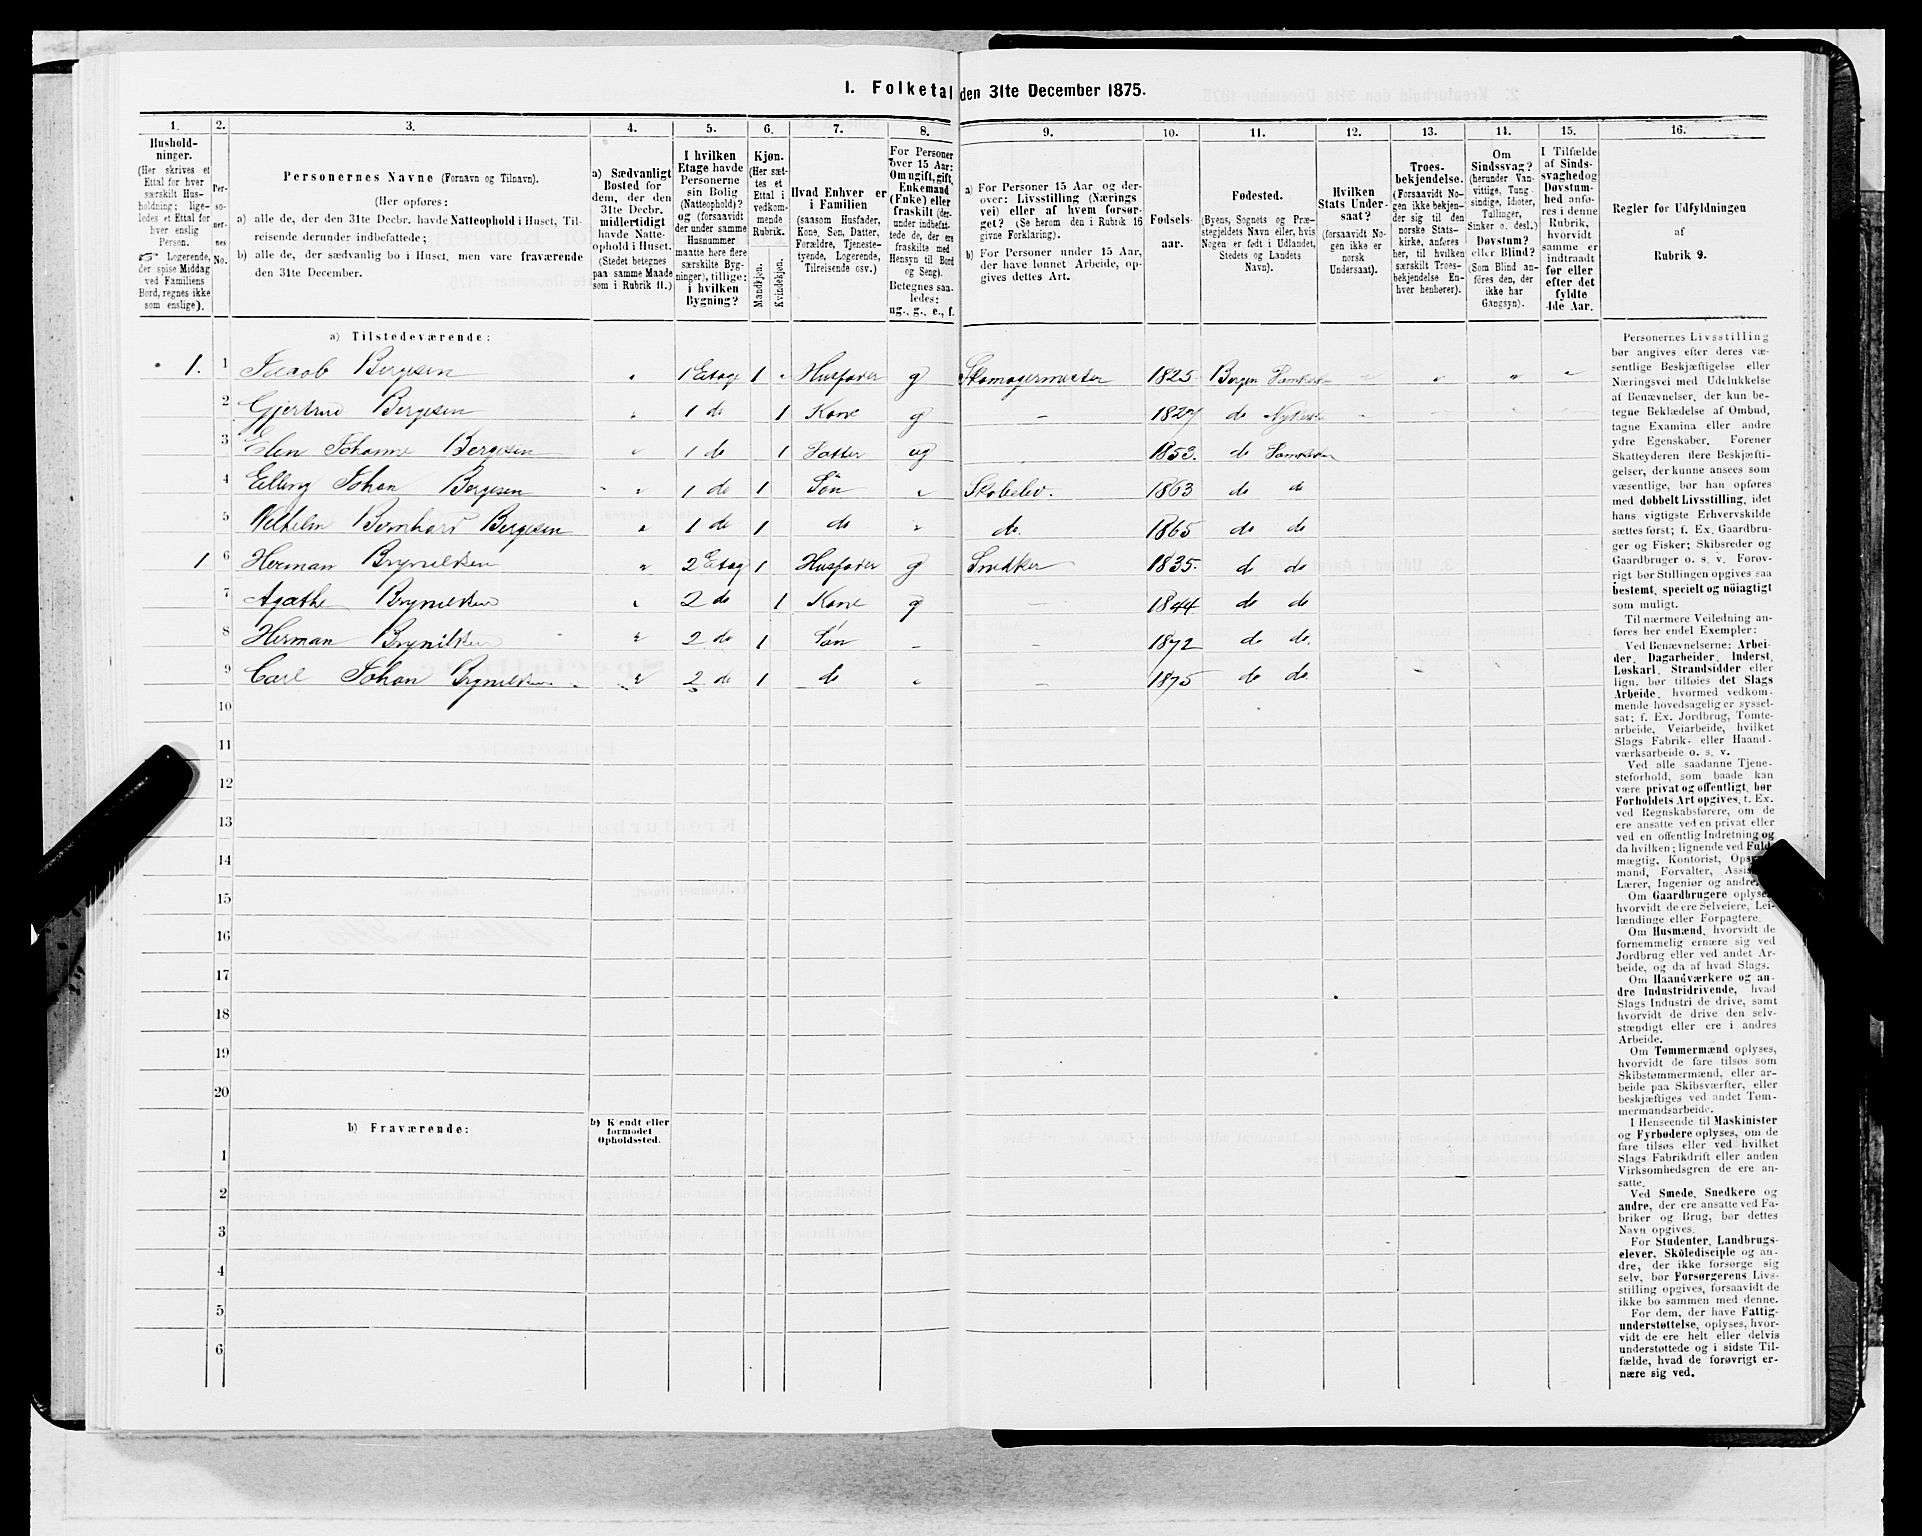 I. Folketal den 31te December 1875.
1.
Hushold-
ninger.
(Her skrives et
Ettal for hver
særskilt Hus-
holdning; lige-
ledes et Ettal for
hver enslig
Person.
☞ Logerende,
der spise Middag
ved Familiens
Bord, regnes ikke
som enslige).
2.
Per-
so-
ner-
nes
No.
3.
Personernes Navne (Fornavn og Tilnavn).
(Her opføres:
a) alle de, der den 31te Decbr. havde Natteophold i Huset, Til-
reisende derunder indbefattede;
b) alle de, der sædvanlig bo i Huset, men vare fraværende
den 31te December.
4.
a) Sædvanligt
Bosted for
dem, der den
31te Decbr.
midlertidigt
havde Natte-
ophold i Huset.
(Stedet betegnes
paa samme Maade
som i Rubrik 11.)
5.
I hvilken
Etage havde
Personerne
sin Bolig
(Natteophold)?
og (forsaavidt
der under samme
Husnummer
maatte høre flere
særskilte Byg-
ninger), tillige:
i hvilken
Bygning?
6.
Kjøn.
(Her sæt-
tes et
Ettal i
vedkom-
mende
Rubrik.
Mandkjøn.
Kvindekjøn.
7.
Hvad Enhver er
i Familien
(saasom Husfader,
Kone, Søn, Datter,
Forældre, Tjeneste-
tyende, Logerende,
Tilreisende osv.)
8.
For Personer
over 15 Aar:
Om ugift, gift,
Enkemand
(Enke) eller
fraskilt (der-
under indbefat-
tede de, der ere
fraskilte med
Hensyn til Bord
og Seng).
Betegnes saa-
ledes:
ug., g., e., f.
9.
a) For Personer 15 Aar og der-
over: Livsstilling (Nærings
vei) eller af hvem forsør-
get? (Se herom den i Rubrik 16
givne Forklaring).
b) For Personer under 15 Aar,
der have lønnet Arbeide, op-
gives dettes Art.
10.
Fødsels-
aar.
11.
Fødested.
(Byens, Sognets og Præ-
stegjeldets Navn eller, hvis
Nogen er født i Udlandet,
Stedets og Landets
Navn).
12.
Hvilken
Stats Under-
saat?
(forsaavidt No-
gen ikke er
norsk
Undersaat).
13.
Troes-
bekjendelse.
(Forsaavidt No-
gen ikke bekjen-
der sig til den
norske Stats-
kirke, anføres
her, til hvilken
særskilt Troes-
bekjendelse En-
hver henhører).
14.
Om
Sindssvag?
(herunder Van-
vittige, Tung-
sindige, Idioter,
Tullinger,
Sinker o. desl.)
Døvstum?
eller Blind?
(Som Blind an-
føres den, der
ikke har
Gangsyn).
15.
I Tilfælde
af Sinds-
svaghed og
Døvstum-
hed anfø-
res i denne
Rubrik,
hvorvidt
samme er
indtraadt
før eller
efter det
fyldte
4de Aar.
16.
Regler for Udfyldningen
af
Rubrik 9.
a) Tilstedeværende:
1. 1 Jacob Bergesen " 1 Etag 1 " Husfader g Skomagermester 1825 Bergen Domkirken " " " "
2 Gjertrud Bergesen " 1 do 1 Kone g – 1827 do Nykirke
3 Elen Johanne Bergesen " 1 do 1 Datter ug 1853. do Domkirken
4 Elling Johan Bergesen " 1 do 1 Søn " Skoleelev. 1863 do do
5 Wilhelm Bernhard Bergesen " 1 do 1 do " do. 1865 do do
1 6 Herman Brynildsen " 2 Etag 1 Husfader g Snedker 1835. do do
7 Agathe Brynildsen " 2 do 1 Kone g – 1844 do do
8 Herman Brynildsen " 2 do 1 Søn – – 1872 do do.
9 Carl Johan Brynildsen " 2 do 1 do " – 1875 do do.
10
11
12
13
14
15
16
17
18
19
20
b) Fraværende:
b) Kjendt eller
formodet
Opholdssted.
1
2
3
4
5
6
Personernes Livsstilling
bør angives efter deres væ-
sentlige Beskjæftigelse eller
Næringsvei med Udelukkelse
af Benævnelser, der kun be-
tegne Beklædelse af Ombud,
tagne Examina eller andre
ydre Egenskaber. Forener
Skatteyderen flere Beskjæfti-
gelser, der kunne ansees som
væsentlige, bør han opføres
med dobbelt Livsstilling, idet
hans vigtigste Erhvervskilde
sættes først; f. Ex. Gaardbru-
ger og Fisker; Skibsreder og
Gaardbruger o. s. v. Forøv-
rigt bør Stillingen opgives saa
bestemt, specielt og nöiagtigt
som muligt.
Til nærmere Veiledning an-
føres her endel Exempler:
Ved Benævnelserne: Arbei-
der, Dagarbeider, Inderst,
Løskarl, Strandsidder eller
lign. bør tilføies det Slags
Arbeide, hvormed vedkom-
mende hovedsagelig er syssel-
sat; f. Ex. Jordbrug, Tomte-
arbeide, Veiarbeide, hvilket
Slags Fabrik- eller Haand-
værksarbeide o. s. v.
Ved alle saadanne Tjene-
steforhold, som baade kan
være privat og offentligt, bør
Forholdets Art opgives, t. Ex.
ved Regnskabsførere, om de
ere ansatte ved en privat eller
ved en offentlig Indretning og
da hvilken; lignende ved Fuld-
mægtig, Kontorist, Opsyns-
mand, Forvalter, Assistent,
Lærer, Ingeniør og andre.
Om Gaardbrugere oplyses,
hvorvidt de ere Selveiere, Lei-
lændinge eller Forpagtere.
Om Husmænd, hvorvidt de
fornemmelig ernære sig ved
Jordbrug eller ved andet Ar-
beide, og da af hvad Slags.
Om Haandværkere og an-
dre Industridrivende, hvad
Slags Industri de drive, samt
hvorvidt de drive den selv-
stændigt eller ere i andres
Arbeide.
Om Tømmermænd oplyses,
hvorvidt de fare tilsøs som
Skibstømmermænd, eller ar-
beide paa Skibsværfter, eller
beskjæftiges ved andet Tøm-
mermandsarbeide.
I Henseende til Maskinister
og Fyrbødere oplyses, om de
fare tilsøs eller ved hvilket
Slags Fabrikdrift eller anden
Virksomhedsgren de ere an-
satte.
Ved Smede, Snedkere og
andre, der ere ansatte ved Fa-
briker og Brug, bør dettes
Navn opgives.
For Studenter, Landbrugs-
elever, Skoledisciple og an-
dre, der ikke forsørge sig
selv, bør Forsørgerens Livs-
stilling opgives, forsaavidt de
ikke bo sammen med denne.
For dem, der have Fattig-
understøttelse, oplyses, hvor-
vidt de ere helt eller delvis
understøttede og i sidste Til-
fælde, hvad de forøvrigt er-
nære sig ved.